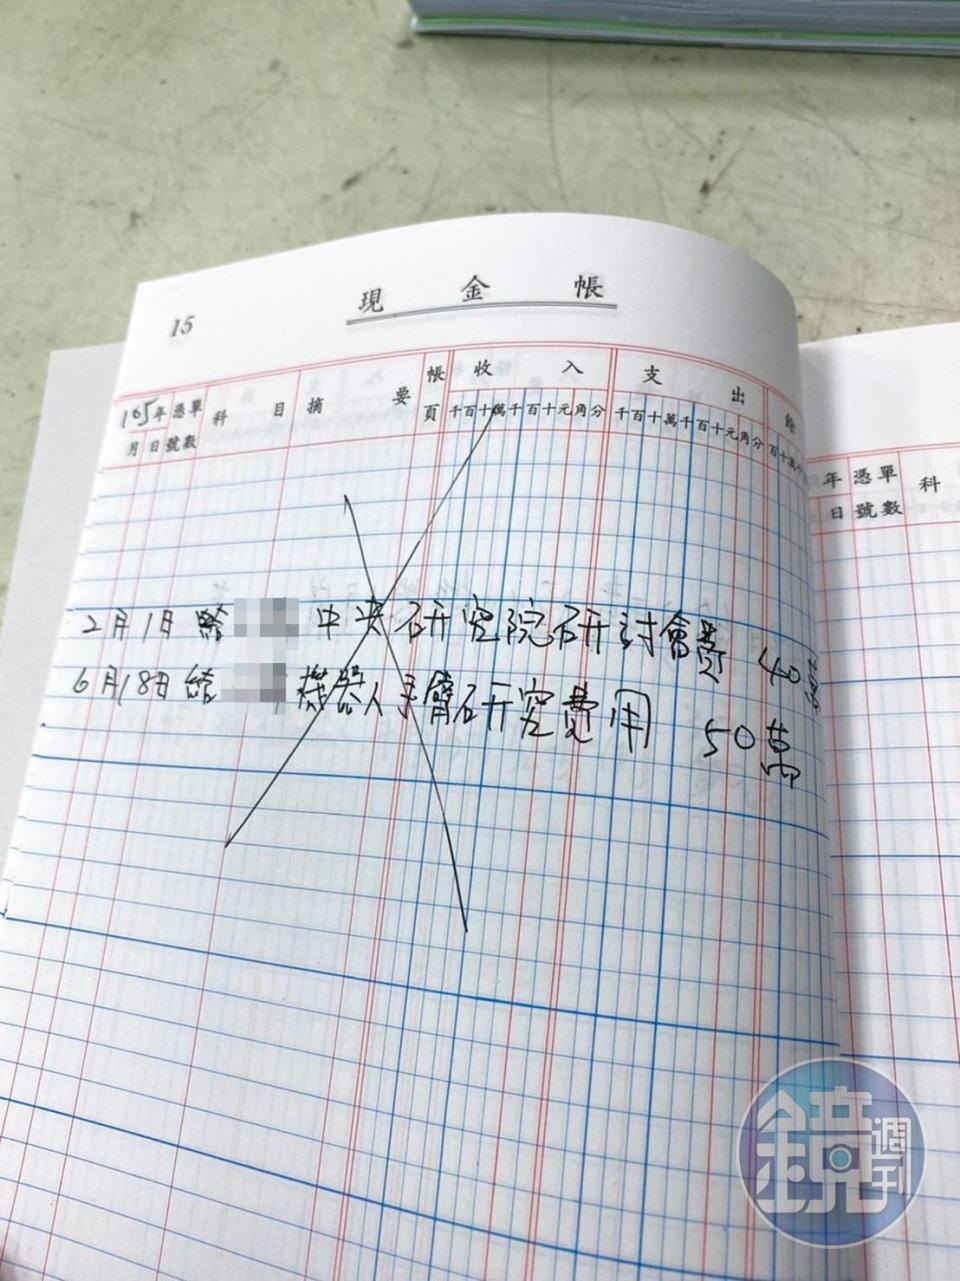 現金帳
15
帳 收入 支出 餘
105年 憑單 科目 摘要 頁 千百十萬千百十元角分 千百十萬千百十元角分 百十萬千
月日 號數
年 憑單 科
日 號數
2月1日 給 中央研究院研討會費 40萬
6月18日 給 機器人手臂研究費用 50萬
鏡週刊